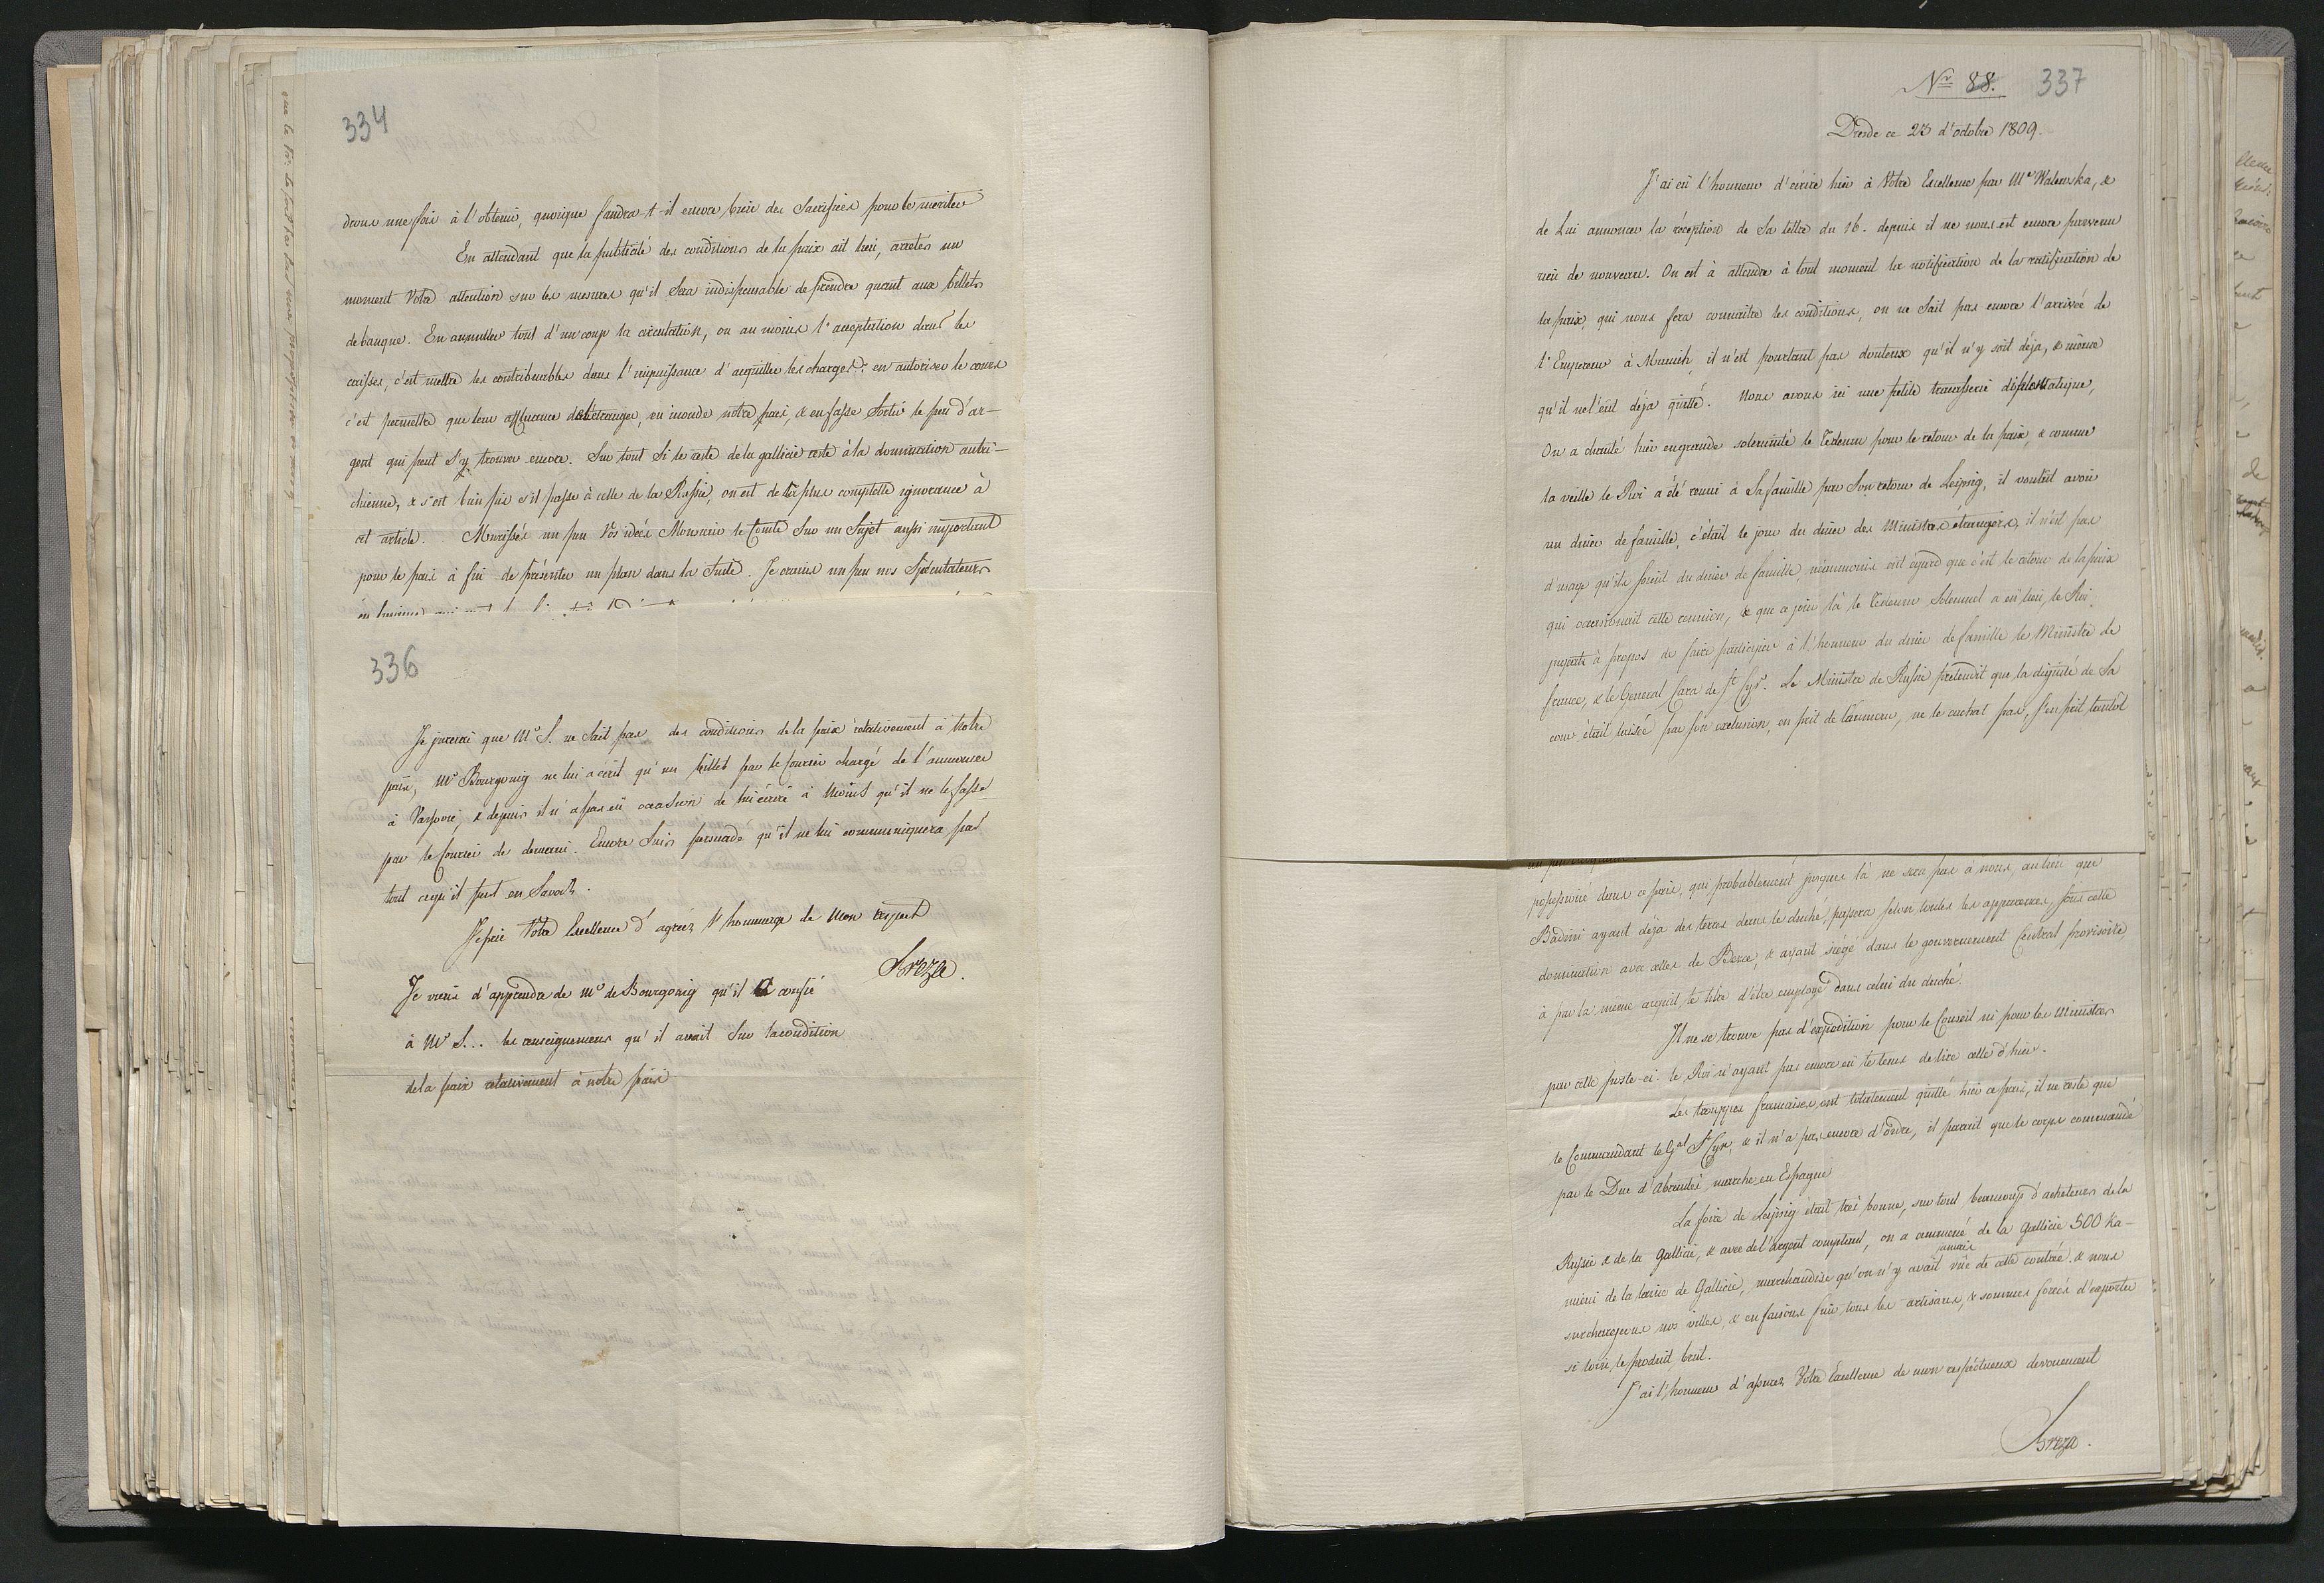 334
drons une fois à l'obtenir, quoique faudra-t-il encore bien des Sacrifices pour le meriter
En attendant que la publicité des conditions de la paix ait lieu, arretés un
moment Votre attention sur les mesures qu'il sera indispensable de prendre quant aux billets
de banque. En annuller tout d'un coup la circulation, ou au moins l'acceptation dans les
caisses, c'est mettre les contribuables dans l'impuissance d'acquitter les charges: en autoriser le cours
c'est permettre que leur affluence de l'étranger, en inonde notre païs, & en fasse sortir le peu d'ar-
gent qui peut s'y trouver encore. Sur tout si le reste de la gallicie reste à la domination autri-
chienne, & c'est bien pis s'il passe à celle de la Russie, on est de la plus complette ignorance à
cet article. Murissés un peu Vos idées Monsieur le Comte sur un Sujet aussi important
pour le païs à fin de présenter un plan dans la suite. Je crains un peu nos Spéculateurs
336
Je jurerai que Mr S. ne sait pas des conditions de la paix relativement à notre
païs, Mr Bourgoing ne lui a écrit qu'un billet par le Courier chargé de l'annoncer
à Varsovie, & depuis il n'a pas eû occasion de lui écrire à moins qu'il ne le fasse
par le Courier de demain. Encore suis persuadé qu'il ne lui communiquera pas
tout ce qu'il peut en Savoir.
Je prie Votre Excellence d'agréer l'hommage de mon respect
Breza.
Je viens d'apprendre de Mr de Bourgoing qu'il a confié
à Mr S... les renseignemens qu'il avait sur la condition
de la paix relativement à notre païs
Nr 88. 337
Dresde ce 23 d'octobre 1809.
J'ai eû l'honneur d'écrire hier à Votre Excellence par Me Walewska, &
de Lui annoncer la réception de Sa lettre du 16. depuis il ne nous est encore parvenu
rien de nouveau. On est à attendre à tout moment la notification de la ratification de
la paix, qui nous fera connaitre les conditions, on ne sait pas encore l'arrivée de
l'Empereur à Munich, il n'est pourtant pas douteux qu'il n'y soit déja, & même
qu'il ne l'eût déja quitté. Nous avons ici une petite tracasserie diplomatique,
On a chanté hier en grande solemnité le Tedeum pour le retour de la paix & comme
la veille le Roi a été reuni à Sa famille par Son retour de Leipsig, il voulut avoir
un diner de famille, c'était le jour du diner des Ministres étrangers, il n'est pas
d'usage qu'ils soient du diner de famille, néammoins eût égard que c'est le retour de la paix
qui occasionnait cette reunion, & que ce jour là le Tedeum Solemnel a eû lieu, le Roi
jugeait à propos de faire participer à l'honneur du diner de famille le Ministre de
france, & le General Cara de St Cyr. Le Ministre de Russie prétendit que la dignité de Sa
cour était lésée par son exclusion, en prit de l'humeur, ne le cachat pas, s'en prit tantôt
possessioné dans ce païs, qui probablement jusques là ne sera pas à nous, au lieu que
Badini ayant déja des terres dans le duché, passera selon toutes les apparences, sous cette
domination avec celles de Berce, & ayant siégé dans le gouvernement Central provisoire,
à par la même acquit, le titre d'être employé dans celui du duché.
Il ne se trouve pas d'expedition pour le Conseil ni pour les Ministres
par cette poste-ci. le Roi n'ayant pas encore eû le tems de lire celle d'hier.
Les trouppes françaises ont totalement quitté hier ce païs, il ne reste que
le Commandant le Gal St Cyr, & il n'a pas encore d'ordre, il parait que le corps commandé
par le Duc d'Abrantés marche en Espagne
La foire de Leipsig était très bonne, sur tout beaucoup d'acheteurs de la
Russie & de la Gallicie, & avec de l'argent comptant, on a ammené de la Gallicie 500 Ka-
mieni de la laine de Gallicie, marchandise qu'on n'y avait jamais vûe de cette contrée. & nous
surchargeons nos villes, & en faisons fuir tous les artisans, & sommes forcés d'exporter
si loin le produit brut.
J'ai l'honneur d'assurer Votre Excellence de mon respectueux devouement
Breza.